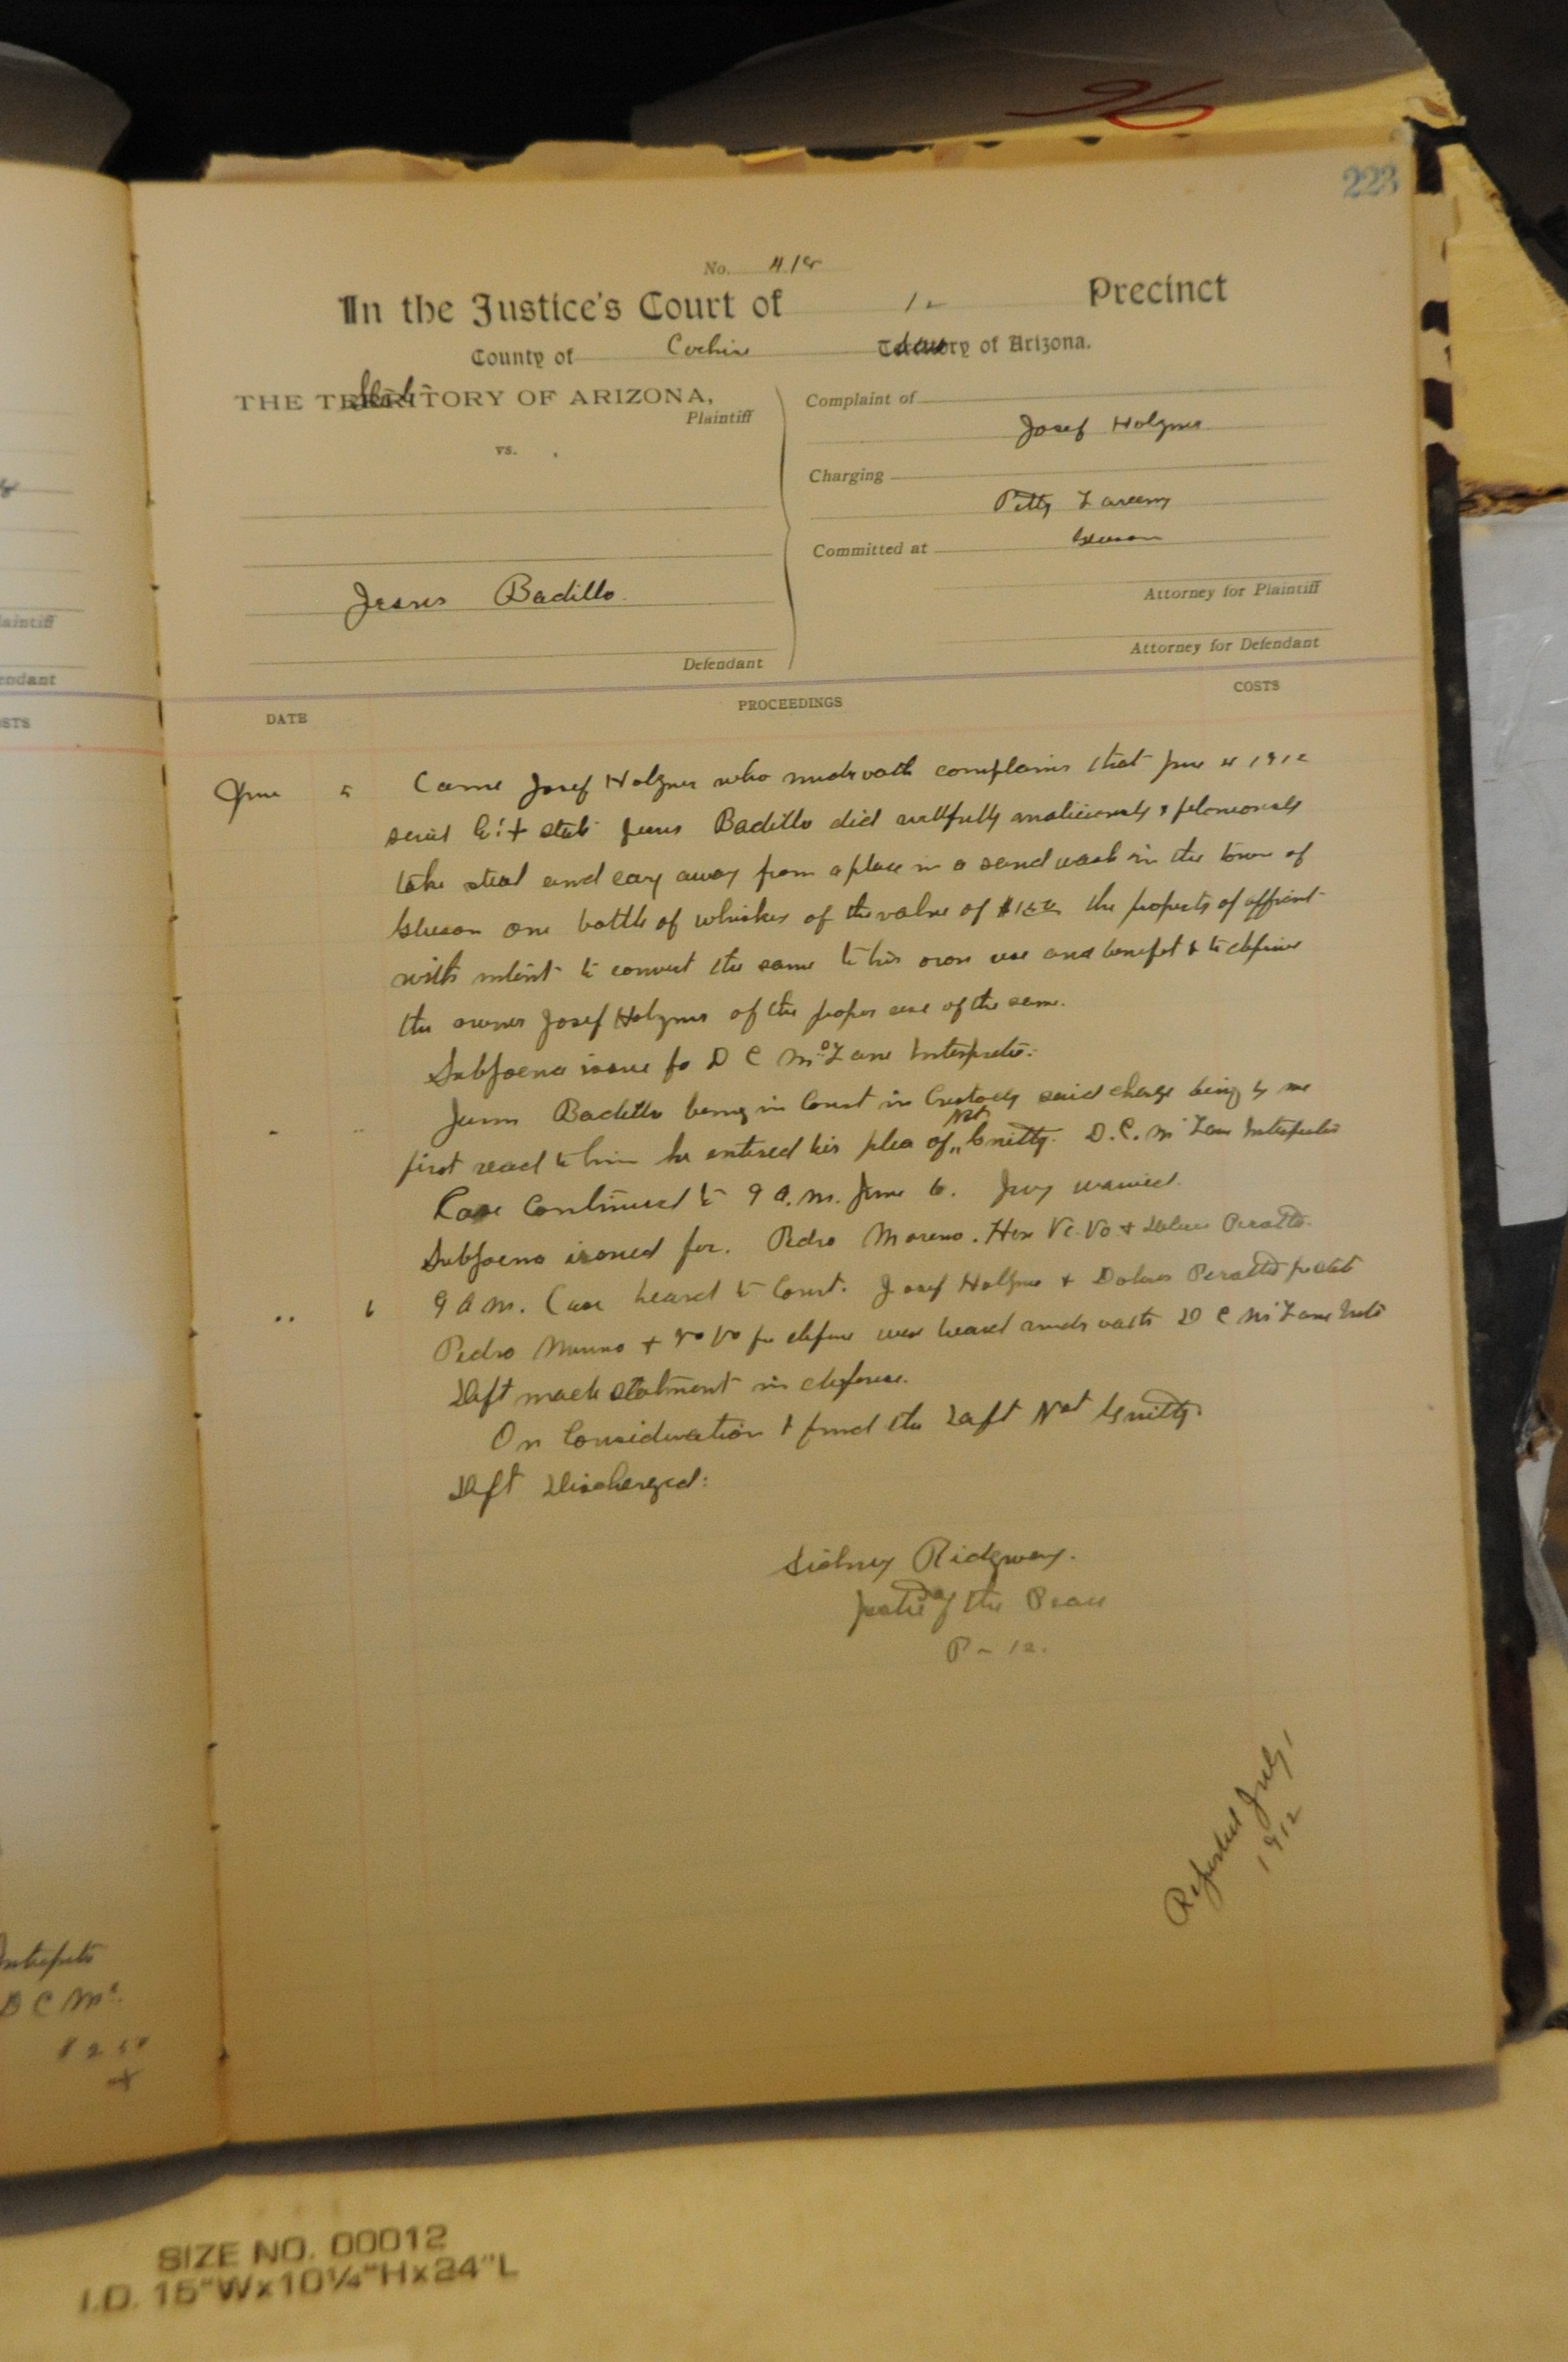 96
223
No. 418
In the Justice's Court of 12 Precinct
County of Cochise State of Arizona.
THE State OF ARIZONA,
Plaintiff
vs.
Jesus Badillo.
Defendant
Complaint of
Josef Holzner
Charging
Petty Larceny
Committed at Gleeson
Attorney for Plaintiff
Attorney for Defendant
DATE
PROCEEDINGS
COSTS
June 5 Came Josef Holzner who under oath complains that June 4 1912
said Co & State Jesus Badillo did willfully maliciously & feloniously
take steal and cary away from a place in a sand wash in the town of
Gleeson one bottle of whiskey of the value of the property of affiant
with intent to convert the same to his own use and benefit & to deprive
the owner Josef Holzner of the proper use of the same.
Subpoena issue fo D C McLane Interpreter.
Jesus Badillo being in Court in Custody said charge being by me
first read to him he entered his plea of Not Guilty. D.C. McLane Interpreter
Case Continued to 9 A.m. June 6. Jury waived.
Subpoena issued for. Pedro Moreno. & Dolores Peralto.
" 6 9 A m. Case heard to Court. Josef Holzner & Dolores Peralto for State
Pedro Moreno & Vo Vo for defense were heard under oath D C McLane Intr
Deft made statment in defense.
On Consideration I find the Deft Not Guilty.
Deft Discharged:
Sidney Ridgway.
Justice of the Peace
P - 12.
Reported July 1
1912
SIZE NO. 00012
I.D. 15"Wx10¼"Hx24"L